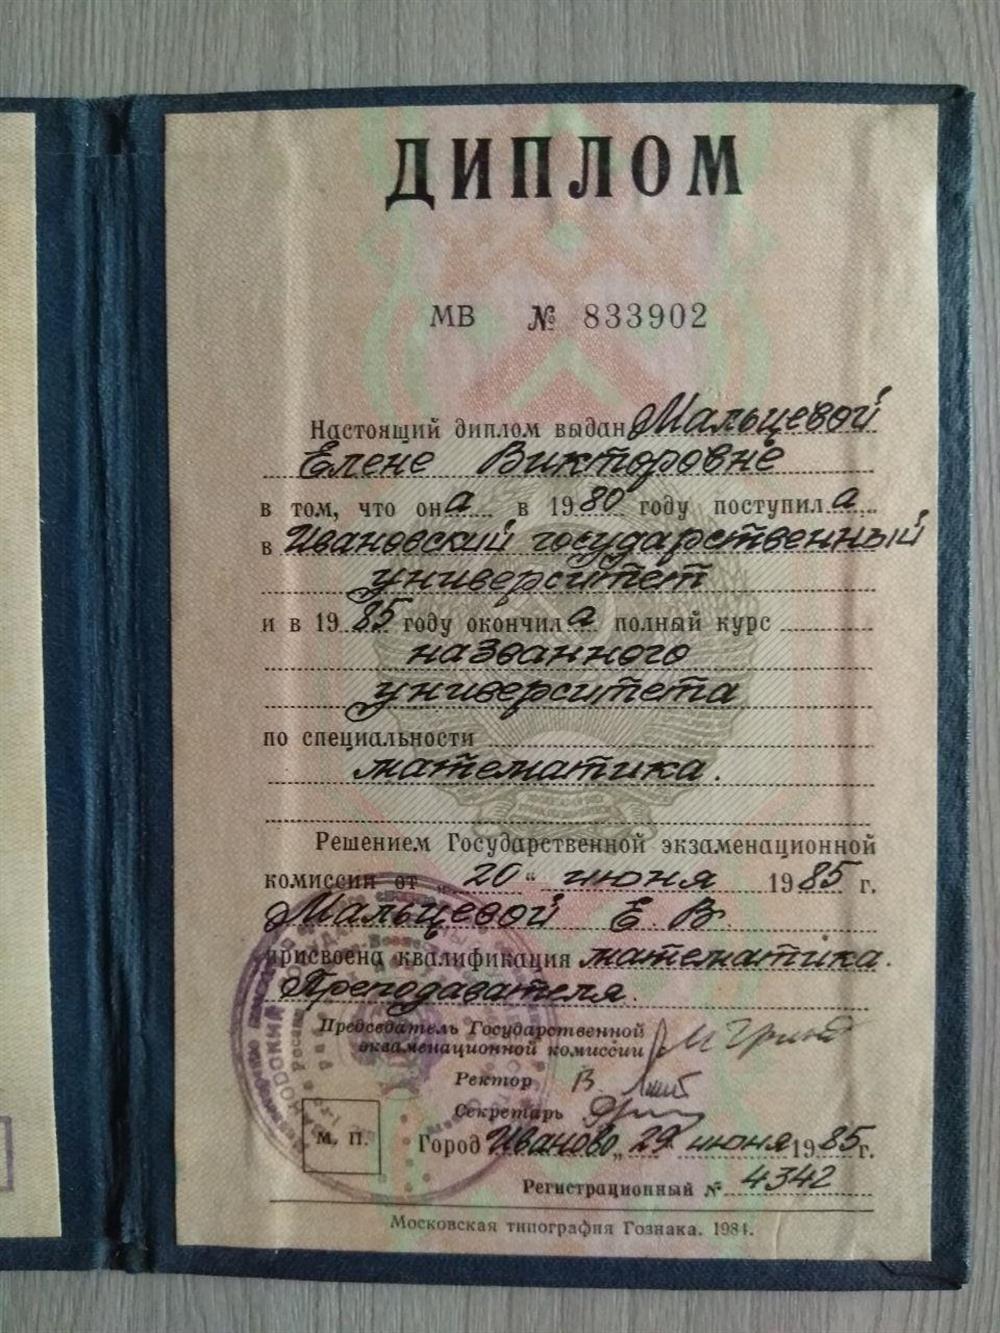 ДИПЛОМ
МВ № 833902
Настоящий диплом выдан Мальцевой
Елене Викторовне
в том, что она в 1980 году поступила
в Ивановский государственный
университет
и в 1985 году окончила полный курс
названного
университета
по специальности
математика.
Решением Государственной экзаменационной
комиссии от „20“ июня 1985 г.
Мальцевой Е. В.
присвоена квалификация математика.
Преподавателя.
Председатель Государственной
экзаменационной комиссии
Ректор
Секретарь
М. П.
Город Иваново „29 июня 1985 г.
Регистрационный № 4342
Московская типография Гознака. 1984.